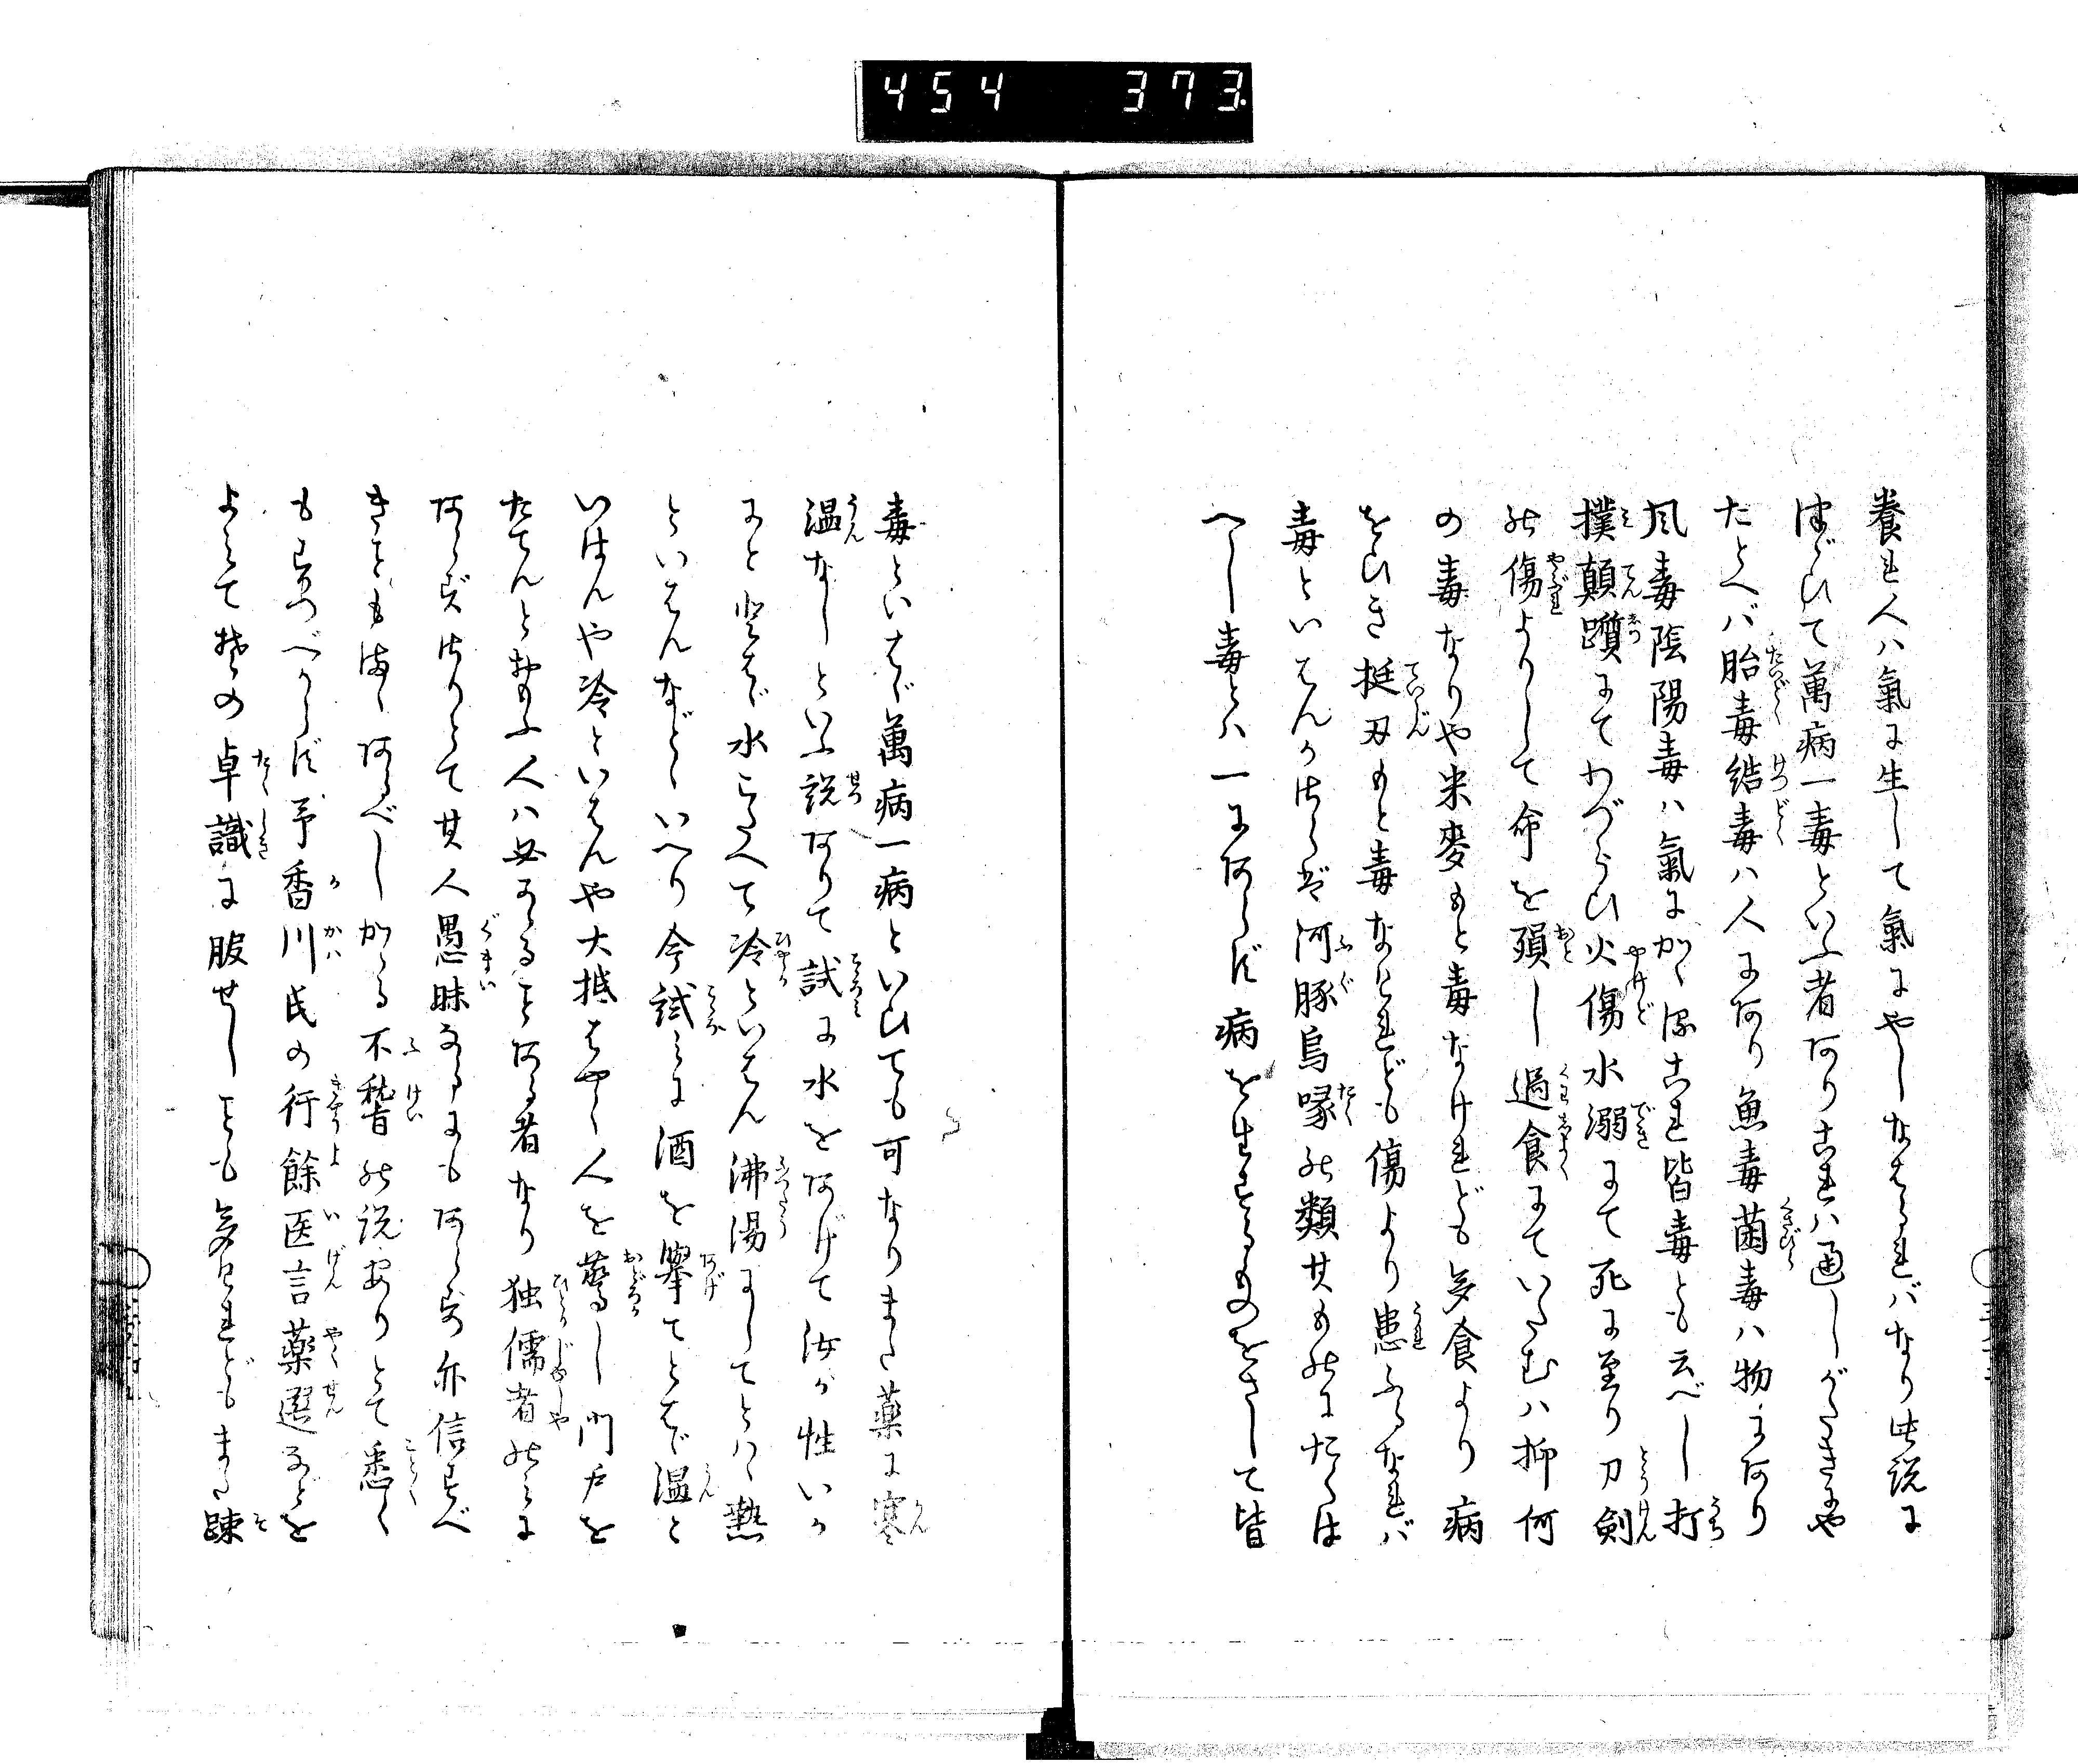 454 373
養れ人ハ氣に生して氣にやしなはるれバなり此説に
つひて萬病一毒といふ者ありこれハ通しがたきにや
たとへバ胎毒結毒ハ人にあり魚毒菌毒ハ物にあり
風毒陰陽毒ハ氣にかゝるこれ皆毒とも云べし打
撲顛躓にてわづらひ火傷水溺にて死に至り刀剣
の傷よりして命を殞し過食にていたむハ抑何
の毒なりや米麥もと毒なけれども多食より病
をひき挺刃もと毒なけれども傷より患ふなれバ
毒といはんかはらば河豚烏喙の類其ものにたくは
へし毒とハ一にあらず病を生するものをさして皆
毒といはゞ萬病一病といひても可なりまた薬に寒
温なしといふ説ありて試に水をあげて汝が性いか
にと問はゞ水こたへて冷といはん沸湯にしてとハゝ熱
といはんなどゝいへり今試みに酒を擧てとはゞ温と
いはんや冷といはんや大抵はやく人を驚し門戸を
たてんとおもふ人ハ必かゝることある者なり独儒者のみに
あらずさりとて其人愚昧なるにもあらず亦信ずべ
きこともまゝあるべしかゝる不稽の説ありとて悉く
もすつべからず予香川氏の行餘医言薬選などを
よみて其の卓識に服せしことも多けれどもまた疎